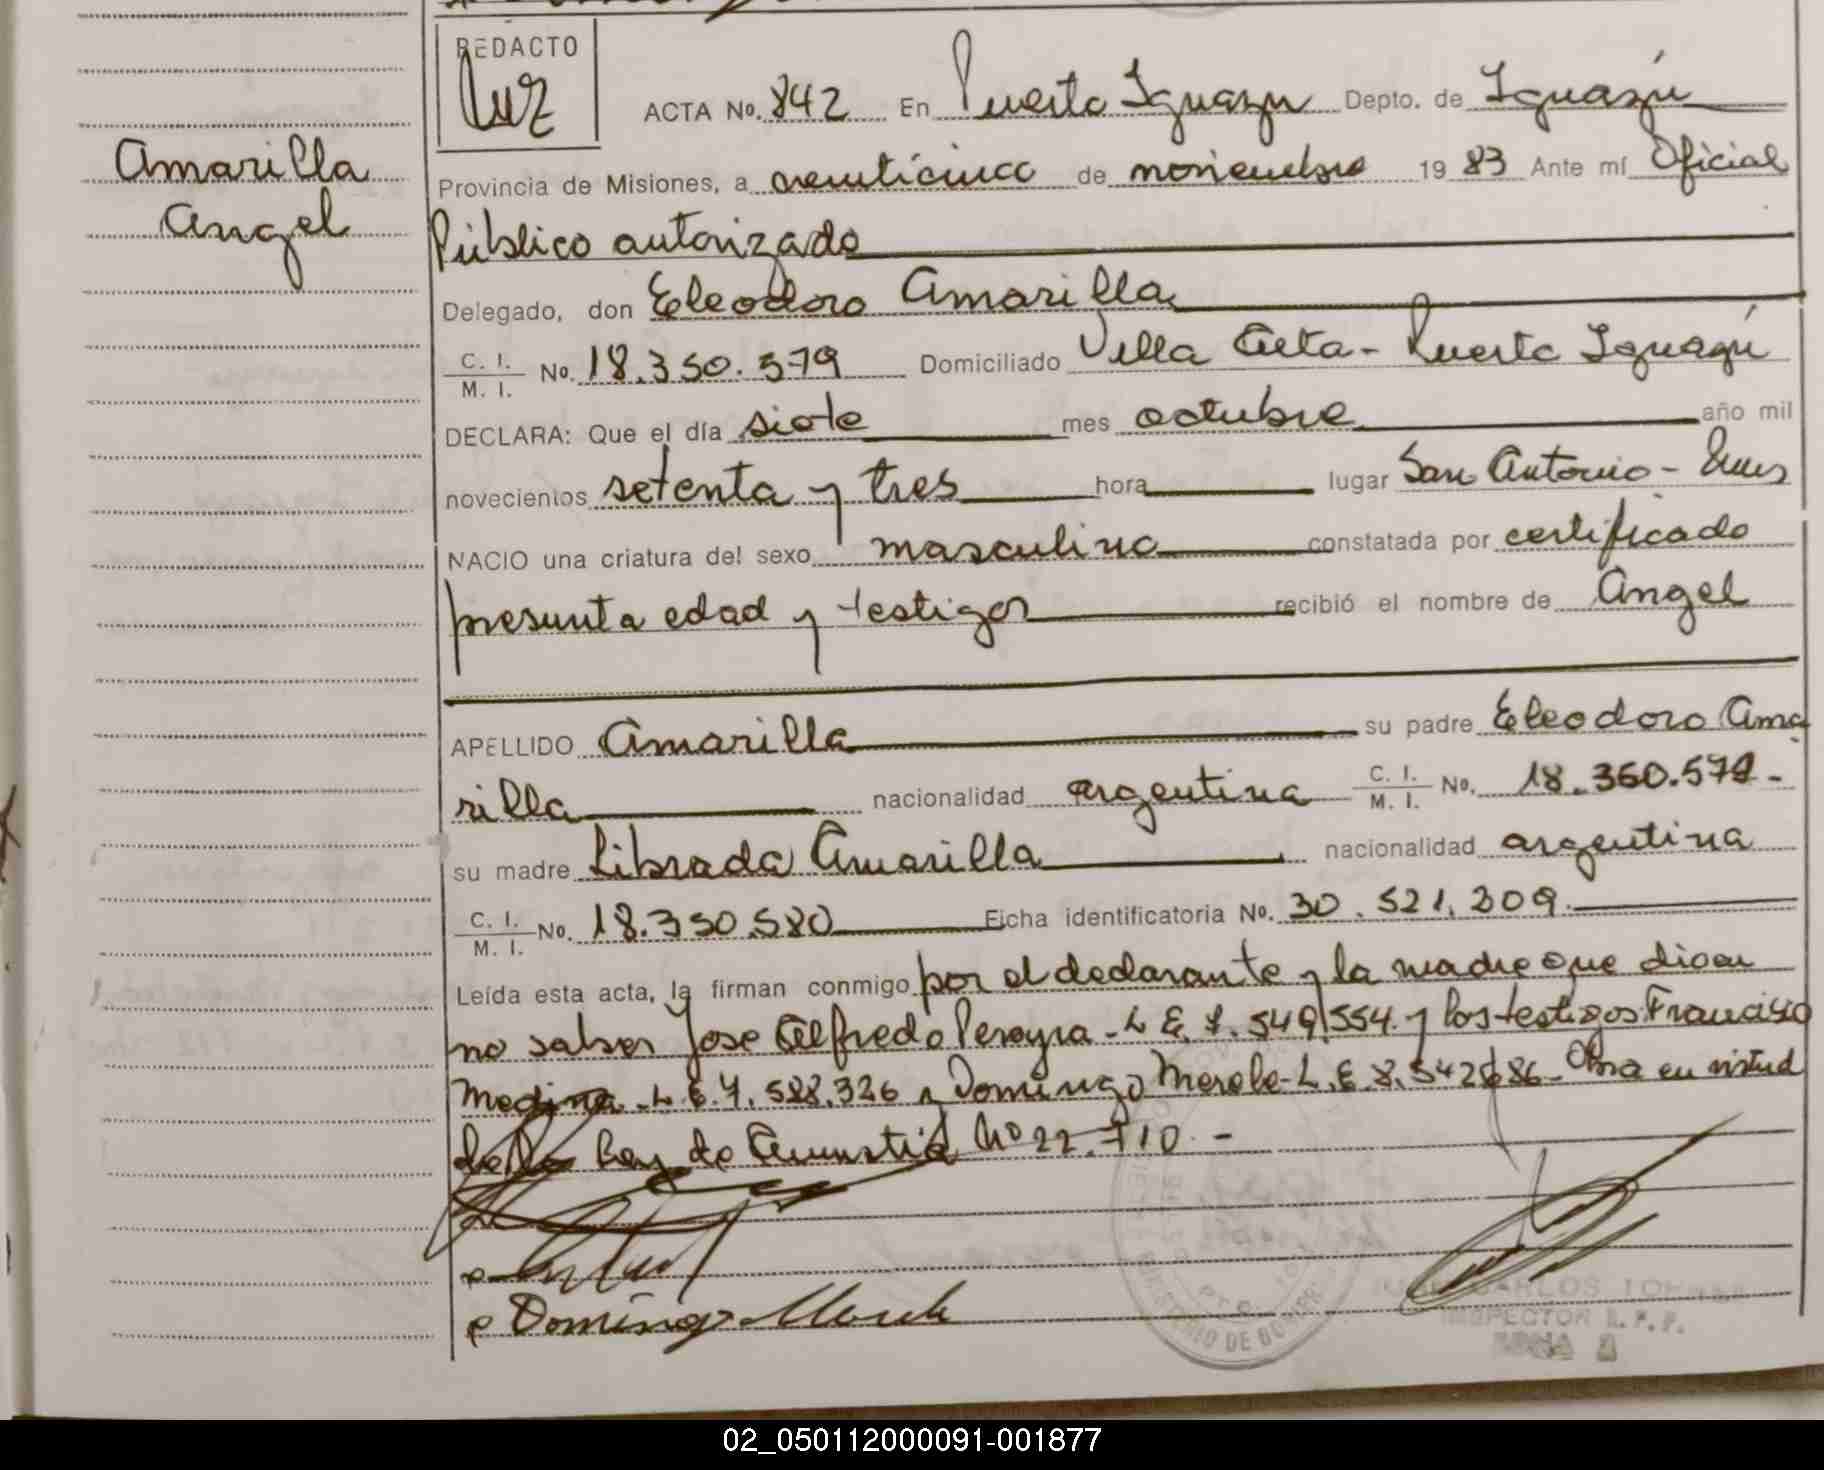 REDACTO
Luz
ACTA No. 842 En Puerto Iguazu Depto. de Iguazú
Amarilla
Angel
Provincia de Misiones, a veinticinco de noviembre 19 83 Ante mí Oficial
Público autorizado
Delegado, don Eleodoro Amarilla
C. I. / M. I. No. 18.350.579 Domiciliado Villa Alta - Puerto Iguazú
DECLARA: Que el día siete mes octubre año mil
novecientos setenta y tres hora lugar San Antonio -
NACIO una criatura del sexo masculino constatada por certificado
presunta edad y testigos recibió el nombre de Angel
APELLIDO Amarilla su padre Eleodoro Ama
rilla nacionalidad argentina C. I. / M. I. No. 18.350.579 -
su madre Librada Amarilla nacionalidad argentina
C. I. / M. I. No. 18.350.580 Ficha identificatoria No. 30.521.209
Leída esta acta, la firman conmigo por el declarante y la madre que dicen
no saber Jose Alfredo Pereyra - L.E. 7.549.554 y los testigos Francisco
Medina - L.E. 7.588.326 y Domingo Merele - L.E. 8.542.686 - Obra en virtud
de la Ley de Amnistia Nº 22.710. -
Domingo
INSPECTOR R.P.P.
02_050112000091-001877